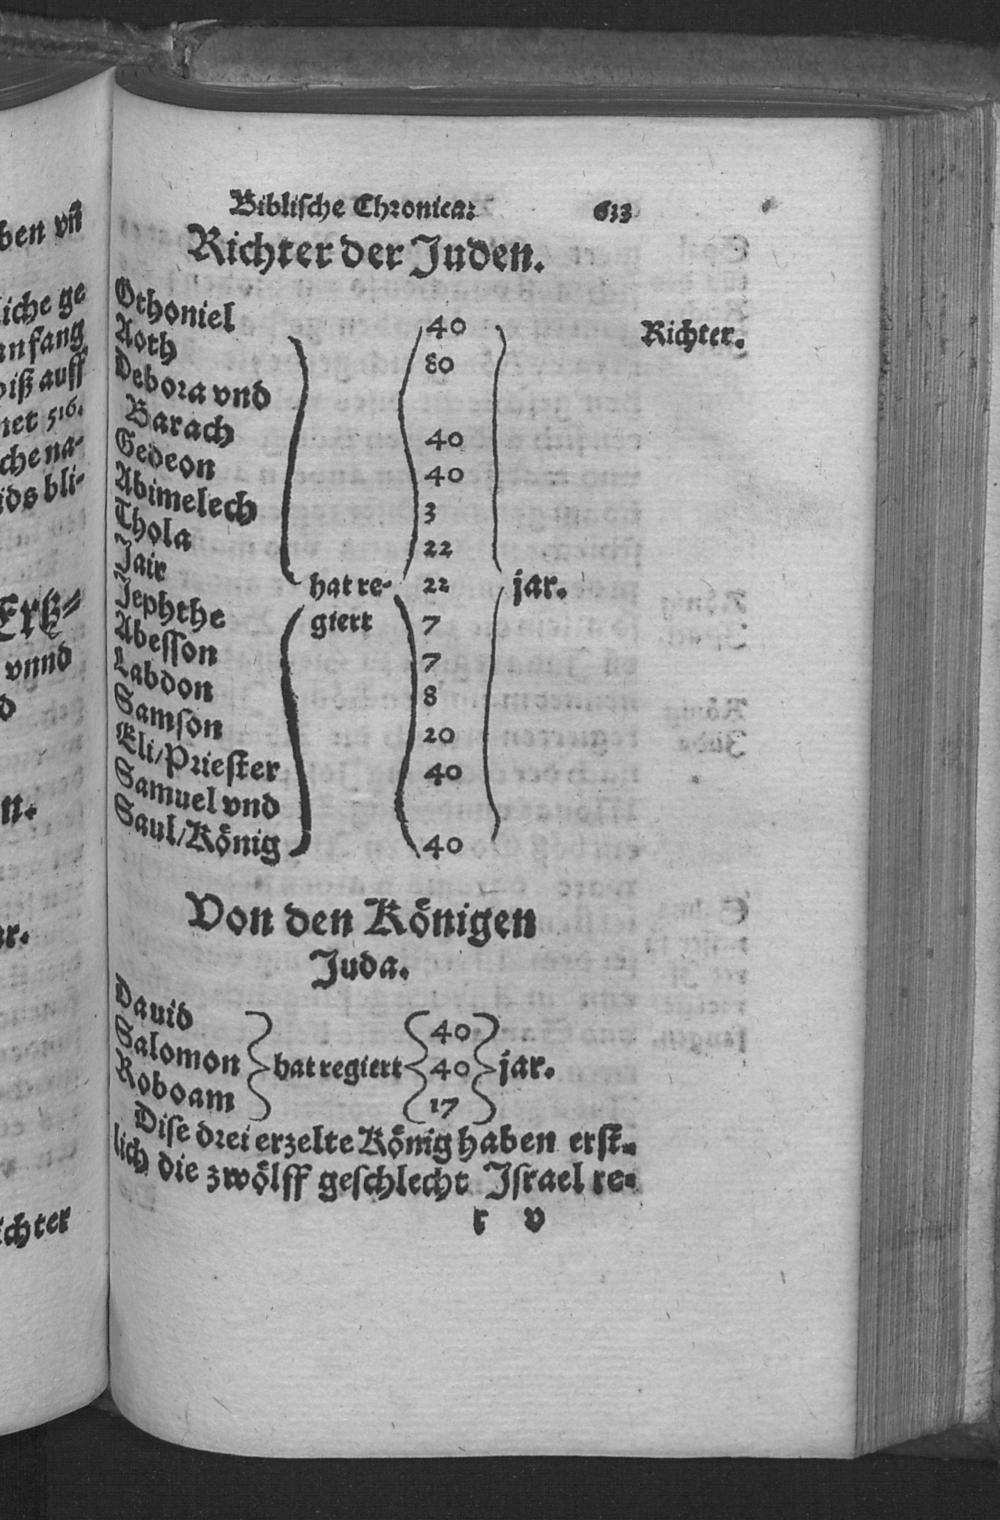 Biblische Chronica: 633
Richter der Juden.
Richter.
Othoniel 40
Aoth 80
Debora vnd
Barach 40
Gedeon 40
Abimelech 3
Thola 22
Jair hat re- 22 jar.
Jephthe giert 7
Abesson 7
Labdon 8
Samson 20
Eli/Priester 40
Samuel vnd
Saul/König 40
Von den Königen
Juda.
Dauid 40
Salomon hat regiert 40 jar.
Roboam 17
Dise drei erzelte König haben erst-
lich die zwölff geschlecht Jsrael re-
r v
ben vñ
liche ge
anfang
biß auff
net 516.
che na-
ids bli-
Ertz-
vnnd
d
n.
ar.
ichter